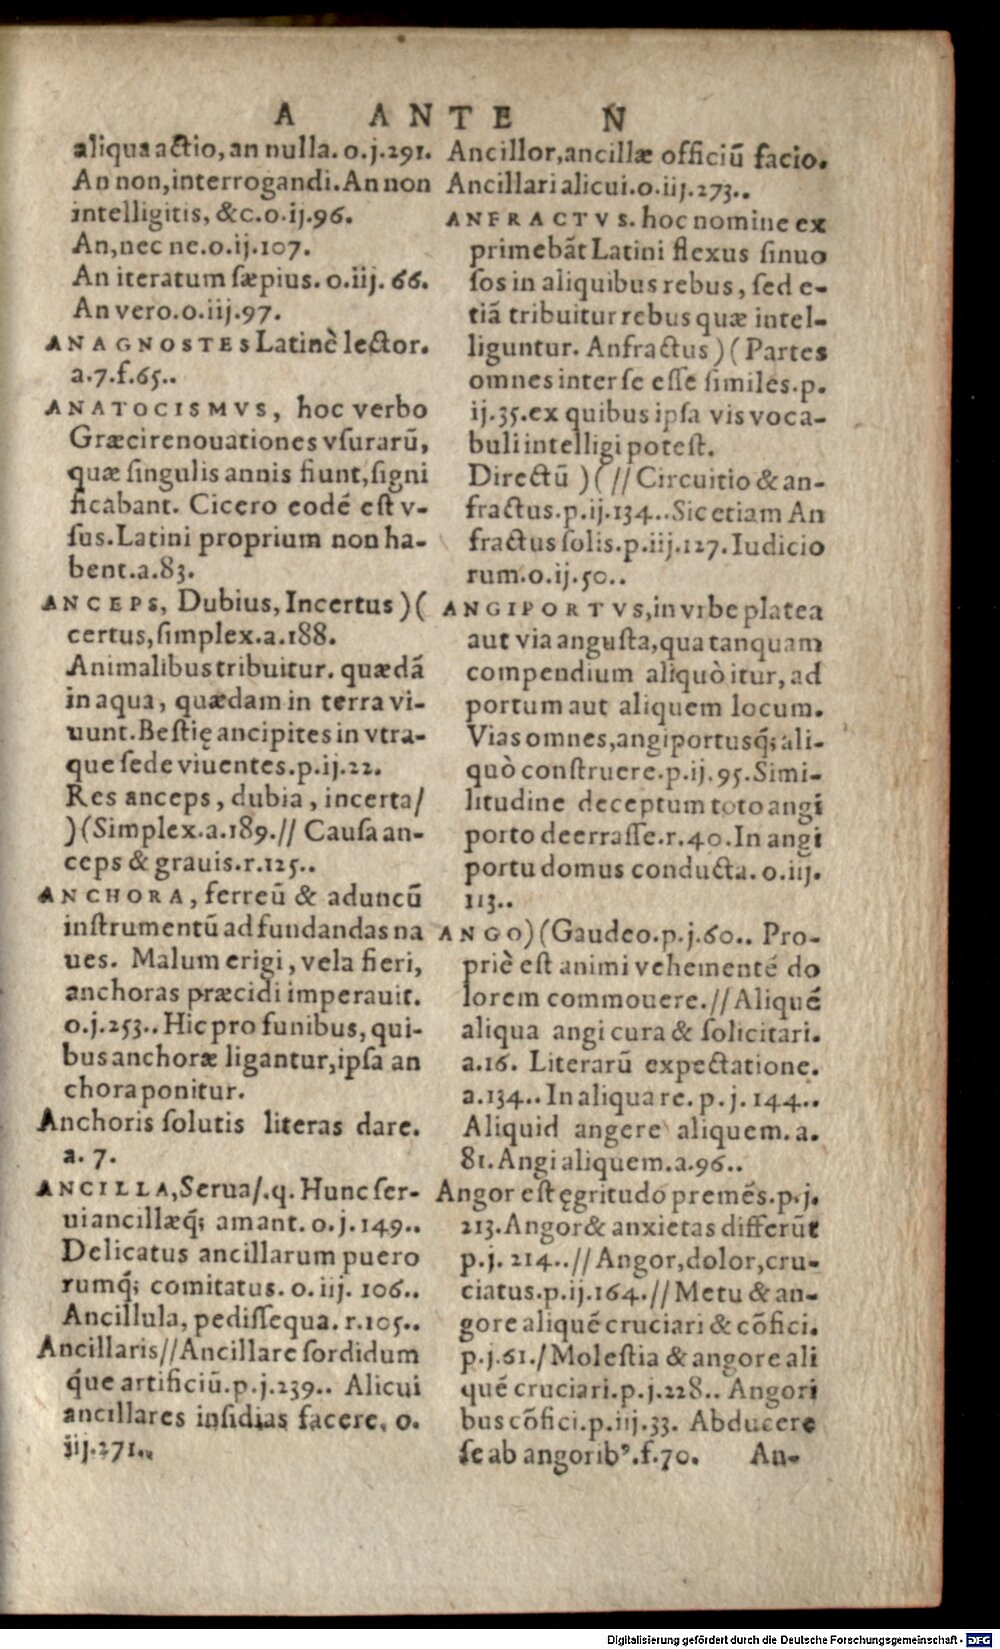 A ANTE N
aliqua actio, an nulla. o.j.291.
An non, interrogandi. An non
intelligitis, &c. o.ij.96.
An, nec ne. o.ij.107.
An iteratum sæpius. o.iij. 66.
An vero. o.iij.97.
ANAGNOSTES Latinè lector.
a.7.f.65..
ANATOCISMVS, hoc verbo
Græci renouationes vsurarũ,
quæ singulis annis fiunt, signi
ficabant. Cicero eodẽ est v-
sus. Latini proprium non ha-
bent. a.83.
ANCEPS, Dubius, Incertus )(
certus, simplex. a.188.
Animalibus tribuitur. quædã
in aqua, quædam in terra vi-
uunt. Bestię ancipites in vtra-
que sede viuentes. p.ij.22.
Res anceps, dubia, incerta/
)( Simplex. a.189. // Causa an-
ceps & grauis. r.125..
ANCHORA, ferreũ & aduncũ
instrumentũ ad fundandas na
ues. Malum erigi, vela fieri,
anchoras præcidi imperauit.
o.j.253.. Hic pro funibus, qui-
bus anchoræ ligantur, ipsa an
chora ponitur.
Anchoris solutis literas dare.
a. 7.
ANCILLA, Serua/.q. Hunc ser-
ui ancillæq́; amant. o.j.149..
Delicatus ancillarum puero
rumq́; comitatus. o.iij. 106..
Ancillula, pedissequa. r.105..
Ancillaris // Ancillare sordidum
q́ue artificiũ. p.j.239.. Alicui
ancillares insidias facere. o.
iij.271..
Ancillor, ancillæ officiũ facio.
Ancillari alicui. o.iij.273..
ANFRACTVS. hoc nomine ex
primebãt Latini flexus sinuo
sos in aliquibus rebus, sed e-
tiã tribuitur rebus quæ intel-
liguntur. Anfractus )( Partes
omnes inter se esse similes. p.
ij.35. ex quibus ipsa vis voca-
buli intelligi potest.
Directũ )( // Circuitio & an-
fractus. p.ij.134.. Sic etiam An
fractus solis. p.iij.127. Iudicio
rum. o.ij.50..
ANGIPORTVS, in vrbe platea
aut via angusta, qua tanquam
compendium aliquò itur, ad
portum aut aliquem locum.
Vias omnes, angiportusq́; ali-
quò construere. p.ij.95. Simi-
litudine deceptum toto angi
porto deerrasse. r.40. In angi
portu domus conducta. o.iij.
113..
ANGO )( Gaudeo. p.j.60.. Pro-
priè est animi vehementẽ do
lorem commouere. // Aliquẽ
aliqua angi cura & solicitari.
a.16. Literarũ expectatione.
a.134.. In aliqua re. p.j.144..
Aliquid angere aliquem. a.
81. Angi aliquem. a.96..
Angor est ęgritudo premẽs. p.j.
213. Angor & anxietas differũt
p.j. 214.. // Angor, dolor, cru-
ciatus. p.ij.164. // Metu & an-
gore aliquẽ cruciari & cõfici.
p.j.61. / Molestia & angore ali
quẽ cruciari. p.j.228.. Angori
bus cõfici. p.iij.33. Abducere
se ab angorib⁹. f.70. An-
Digitalisierung gefördert durch die Deutsche Forschungsgemeinschaft - DFG